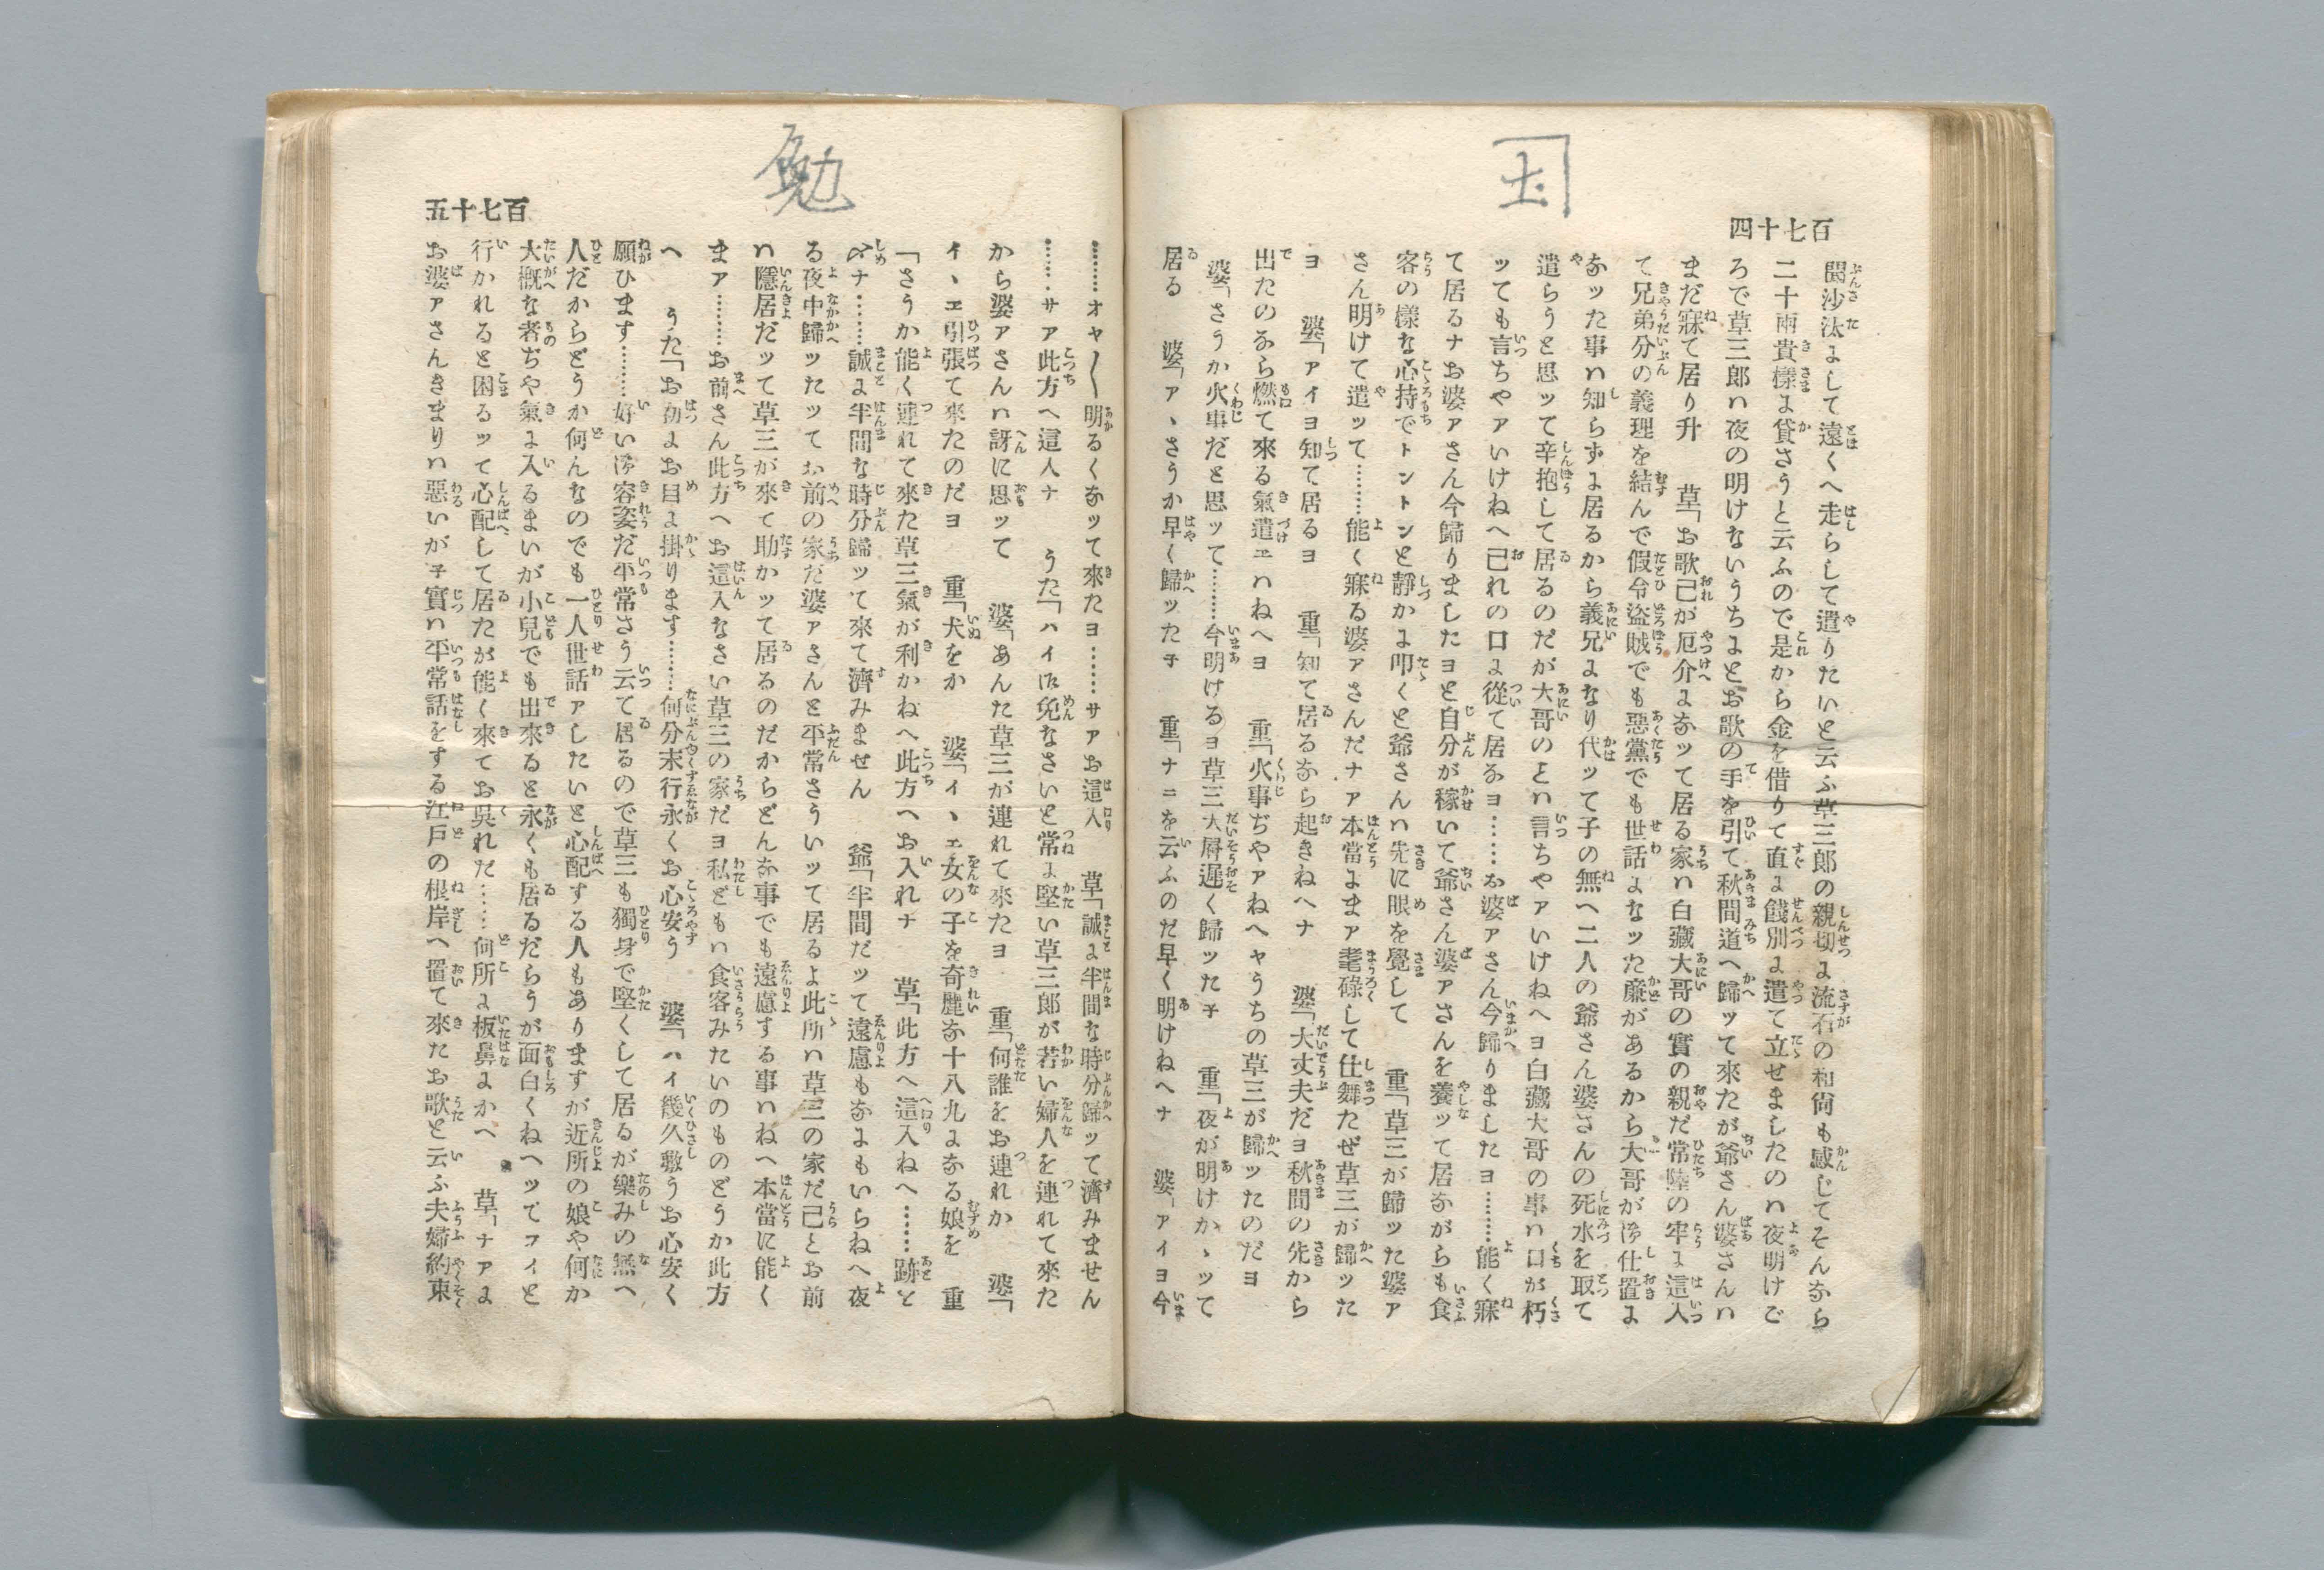 百七十四
聞沙汰よして遠くへ走らして遣りたいと云ふ草三郎の親切よ流石の和尚も感じてそんなら
二十兩貴樣よ貸さうと云ふので是から金を借りて直よ餞別よ遣て立せましたのハ夜明けご
ろで草三郎ハ夜の明けないうちよとお歌の手を引て秋間道へ歸ッて來たが爺さん婆さんハ
まだ寐て居り升 草「お歌己が厄介よなッて居る家ハ白藏大哥の實の親だ常陸の牢よ這入
て兄弟分の義理を結んで假令盜賊でも惡黨でも世話よなッた廉があるから大哥が御仕置よ
なッた事ハ知らずよ居るから義兄よなり代ッて子の無へ二人の爺さん婆さんの死水を取て
遣らうと思ッて辛抱して居るのだが大哥のとハ言ちやアいけねへヨ白藏大哥の事ハ口が朽
ッても言ちやアいけねへ己れの口よ從て居なヨ……お婆アさん今歸りましたヨ………能く寐
て居るナお婆アさん今歸りましたヨと自分が稼いで爺さん婆アさんを養ッて居ながらも食
客の樣な心持でトントンと靜かよ叩くと爺さんハ先に眼を覺して 重「草三が歸ッた婆ア
さん明けて遣ッて………能く寐る婆アさんだナア本當よまア耄碌して仕舞たぜ草三が歸ッた
ヨ 婆「アイヨ知て居るヨ 重「知て居るなら起きねへナ 婆「大丈夫だヨ秋間の先から
出たのなら燃て來る氣遣ェハねへヨ 重「火事ぢやアねへヤうちの草三が歸ッたのだヨ
婆「さうか火事だと思ッて………今明けるヨ草三大層遲く歸ッた子 重「夜が明けかゝッて
居る 婆「アゝさうか早く歸ッた子 重「ナニを云ふのだ早く明けねへナ 婆「アイヨ今
百七十五
……オヤ〱明るくなッて來たヨ……サアお這入 草「誠よ半間な時分歸ッて濟みません
……サア此方へ這入ナ うた「ハイ御免なさいと常よ堅い草三郎が若い婦人を連れて來た
から婆アさんハ訝に思ッて 婆「あんた草三が連れて來たヨ 重「何誰をお連れか 婆「
イヽエ引張て來たのだヨ 重「犬をか 婆「イヽエ女の子を奇麗な十八九よなる娘を 重
「さうか能く連れて來た草三氣が利かねへ此方へお入れナ 草「此方へ這入ねへ……跡と
〆ナ……誠よ半間な時分歸ッて來て濟みません 爺「半間だッて遠慮もなよもいらねへ夜
る夜中歸ッたッてお前の家だ婆アさんと平常さういッて居るよ此所ハ草三の家だ己とお前
ハ隱居だッて草三が來て助かッて居るのだからどんな事でも遠慮する事ハねへ本當に能く
まア………お前さん此方へお這入なさい草三の家だヨ私どもハ食客みたいのものどうか此方
へ うた「お初よお目よ掛ります………何分末行永くお心安う 婆「ハイ幾久敷うお心安く
願ひます………好い御容姿だ平常さう云て居るので草三も獨身で堅くして居るが樂みの無へ
人だからどうか何んなのでも一人世話アしたいと心配する人もありますが近所の娘や何か
大概な者ぢや氣よ入るまいが小兒でも出來ると永くも居るだらうが面白くねヘッてフィと
行かれると困るッて心配して居たが能く來てお呉れた……何所よ板鼻よかへ 草「ナアよ
お婆アさんきまりハ惡いが子實ハ平常話をする江戸の根岸へ置て來たお歌と云ふ夫婦約束